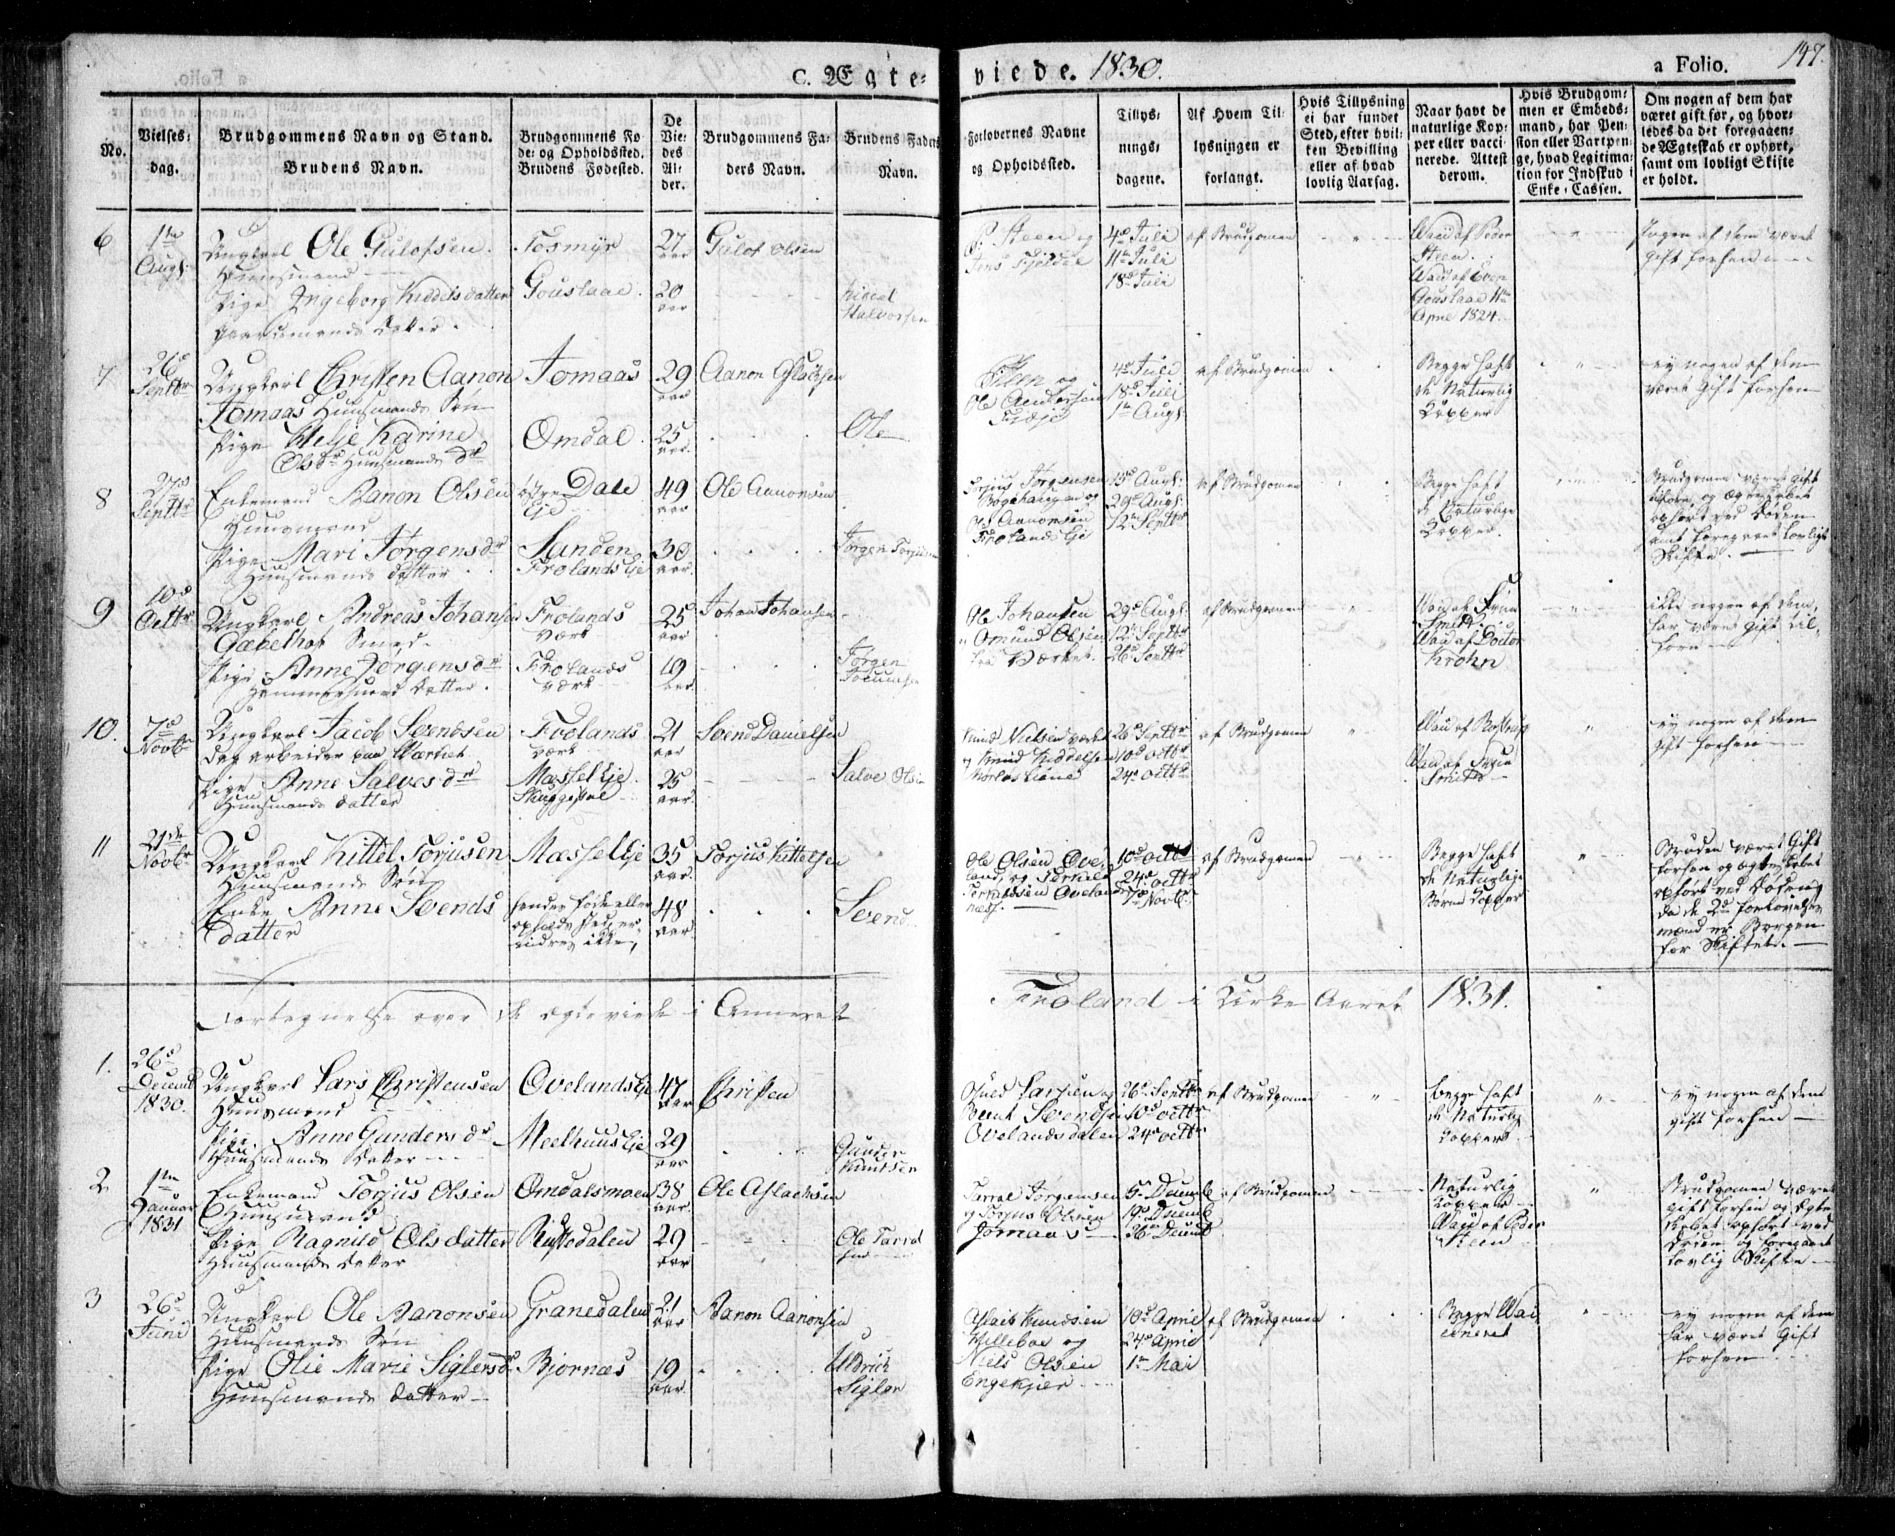 C. Ægte-
viede. 1830.
a Folio.
147.
No.
Vielses-
dag.
Brudgommens Navn og Stand.
Brudens Navn.
Brudgommens Fø-
de- og Opholdssted.
Brudens Fødested.
De
Vie-
des
Al-
der.
Brudgommens Fa-
ders Navn.
Brudens Faders
Navn.
Forlovernes Navne
og Opholdssted.
Tillys-
nings-
dagene.
Af Hvem Til-
lysningen er
forlangt.
Hvis Tillysning
ei har fundet
Sted, efter hvil-
ken Bevilling
eller af hvad
lovlig Aarsag.
Naar havt de
naturlige Kop-
per eller vacci-
nerede. Attest
derom.
Hvis Brudgom-
men er Embeds-
mand, har Pen-
sion eller Vartpen-
ge, hvad Legitima-
tion for Indskud i
Enke-Cassen.
Om nogen af dem har
været gift før, og hvor-
ledes da det foregaaen-
de Ægteskab er ophørt,
samt om lovligt Skifte
er holdt.
6
1ste
Augt
Ungkarl Ole Gulofsen
Huusmand
Pige Ingeborg Kiddelsdatter
Gaardmands Datter
Tosmyr
Gouslaae
27 aar
20 aar
Gulof Olsen
Halvorsen
P. Steen og
Jens Fjeldal
4de Juli
11te Juli
18de Juli
af Brudgomen
Wac af Peder
Steen.
Gouslaae 11te
April 1824.
Ingen af dem været
gift forhen
7
26de
Septbr
Ungkarl Christen Aanon
Tomaas Huusmands Søn
Pige Helje Karine
Olsdr Huusmands Dr
Tomaas
Omdal
29 aar
25 aar
Aanon Aslaksen
Ole
Steen og
Ole Andersen
4de Juli
18de Juli
1te Augt
af Brudgomen
Begge haft
de Naturlig
Kopper
ey nogen af dem
været Gift forhen
8
27de
Septbr
Enkemand Aanon Olsen
Huusmand
Pige Mari Jørgensdr
Huusmands datter
Dale
Eje
Sanden
Frolands Eje
49 aar
30 aar
Ole Aanonsen
Jørgen
Torjus Jørgensen
og
Ole Aanonsen
Frolands Eje
15de Augt
29de Augt
12te Septbr
af Brudgomen
Begge haft
de Naturlige
Kopper
Brudgomen været Gift
forhen og Ægteskabet
ophørt ved Døden
samt foregaaet Lovligt
Skifte
9
10de
Octbr
Ungkarl Andreas Johansen
Gabelhof Smed
Pige Anne Jørgensdr
Hammersmed Datter
Frolands
Værk
Frolands
Værk
25 aar
19 aar
Johan Johansen
Jørgen
Ole Johansen
Omund Olsen
fra Værket
29de Augt
12te Septbr
26de Septbr
af Brudgomen
Smith
Wac af Doctor
Krohn
ikke nogen af dem,
har været Gift til-
forn
10.
7de
Novbr
Ungkarl Jacob Svendsen
Dagarbeider paa Værket
Pige Anne Salvesdr
Huusmands datter
Frolands
Værk
Mæssel Eje
21 aar
25 aar
Svend Danielsen
Salve Olsen
Knud Nielsen Værket
og Knud Kiddelsen
26de Septbr
10de Octbr
24de Octbr
af Brudgomen
Smith
ey nogen af dem
gift forhen
11
21de
Novbr
Ungkarl Kittel Torjusen
Huusmands Søn
Enke Anne Svends
datter
Mæssel Eje
hendes Føde eller
opholds Sted, er
vides ikke,
35 aar
48 aar
Torjus Kittelsen
Svend
Ole Olsen Ove-
land, og Terkield
Terkieldsen Oveland
10de Octbr
24de Octbr
7de Novb.
af Brudgomen
Begge haft
de Naturlige
Børne Kopper
Bruden været Gift
forhen og ægteskabet
ophørt ved Døden,
da de 2de forlovelses
mænd er Borgen
for Skiftet.
Fortegnelse over de ægteviede i Annexet
Froland i Kirke Aaret 1831.
1.
26de
Decemb
1830.
Ungkarl Lars Christensen
Huusmand
Pige Anne Gundersdr
Huusmands Datter
Ovelands Eje
Meelhuus Eje
47 aar
29 aar
Christen
Gunder
Knutsen
Larsen og
Svendsen
Ovelandsdalen
26de Septbr
10de Octbr
24de Octbr
af Brudgomen
Begge haft
de Naturlig
Kopper
ey nogen af dem
gift forhen
2
1ste
Januar
1831
Enkemand Torjus Olsen
Huusmand
Pige Ragnild Olsdatter
Huusmands Datter
Omdalsmoen
38 aar
29 aar
Ole Aslachsen
Ole Tarald
sen
Tarral Jørgensen
og Torjus Olsen
Jomaas
5te Decemb
19de Decemb
26de Decemb
af Brudgomen
Naturlig
Kopper
Wac af Peder
Steen
Brudgomen været
gift forhen og Ægte
skabet ophørt ved
Døden og foregaaet
Lovlig Skifte
3
26de
Juni
Ungkarl Ole Aanonsen
Huusmands Søn
Pige Olie Marie Siglersdr
Huusmands datter
Granedalen
Bjornæs
21 aar
19 aar
Aanon Aanonsen
Uldrich
Sigler
Aslak Knudsen
Hillebae og
Niels Olsen
Engekjer
10de April
24de April
1te Mai
af Brudgomen
Begge Wac
cineret
ey nogen af dem
har været Gift
forhen